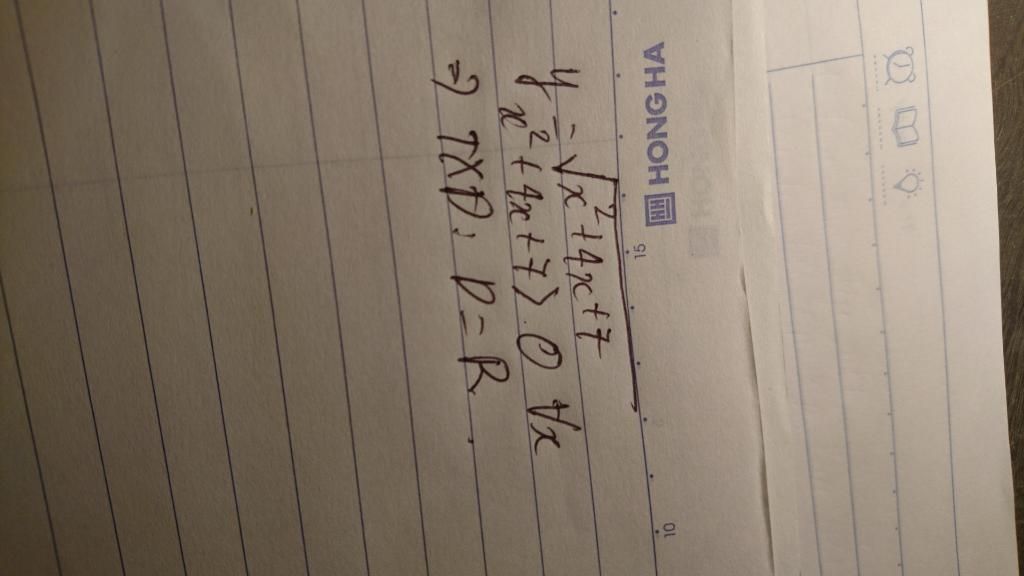 HONG HA
15
10
y = √x²+4x+7
x²+4x+7 > 0 ∀x
⇒ TXĐ: D = R.